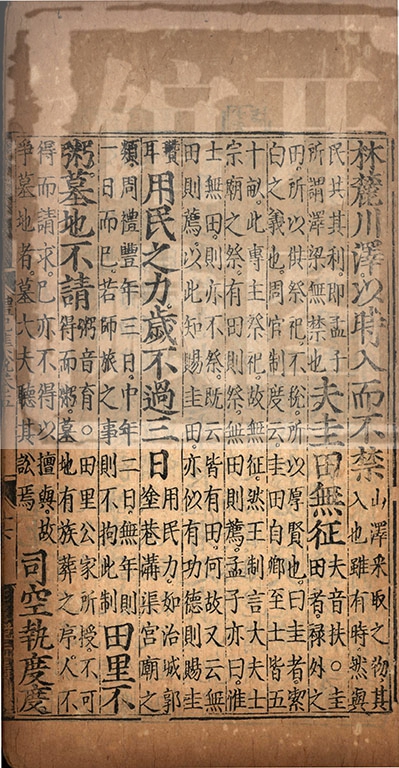 林麓川澤以時入而不禁山澤采取之物其
入也雖有時然與
民共其利即孟子
所謂澤梁無禁也夫圭田無征夫音扶○圭
田者祿外之
田所以供祭祀不稅所以厚賢也曰圭者潔
白之義也周官制度云圭田自卿至士皆五
十畝此專主祭祀故無征然王制言大夫士
宗廟之祭有田則祭無田則薦孟子亦曰惟
士無田則亦不祭既云皆有田何故又云無
田則薦以此知賜圭田亦似有功德則賜圭
瓚
耳用民之力歲不過三日用民力如治城郭
塗巷溝渠宮廟之
類周禮豐年三日中年二日無年則
一日而已若師旅之事則不拘此制田里不
粥墓地不請粥音育○田里公家所授不可
得而粥墓地有族葬之序人不
得而請求己亦不得以擅與故
爭墓地者墓大夫聽其訟焉司空執度度